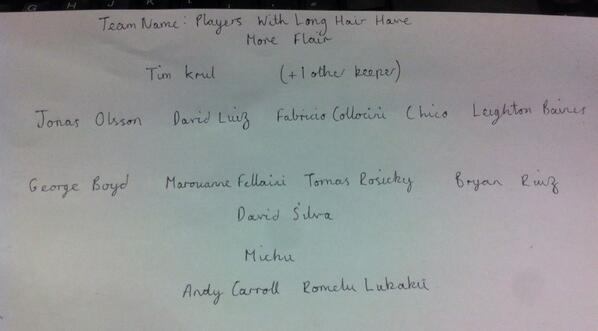 Team Name: Players With Long Hair Have
More Flair
Tim Krul (+1 other keeper)
Jonas Olsson David Luiz Fabricio Collocini Chico Leighton Baines
George Boyd Marouanne Fellaini Tomas Rosicky Bryan Ruiz
David Silva
Michu
Andy Carroll Romelu Lukaku